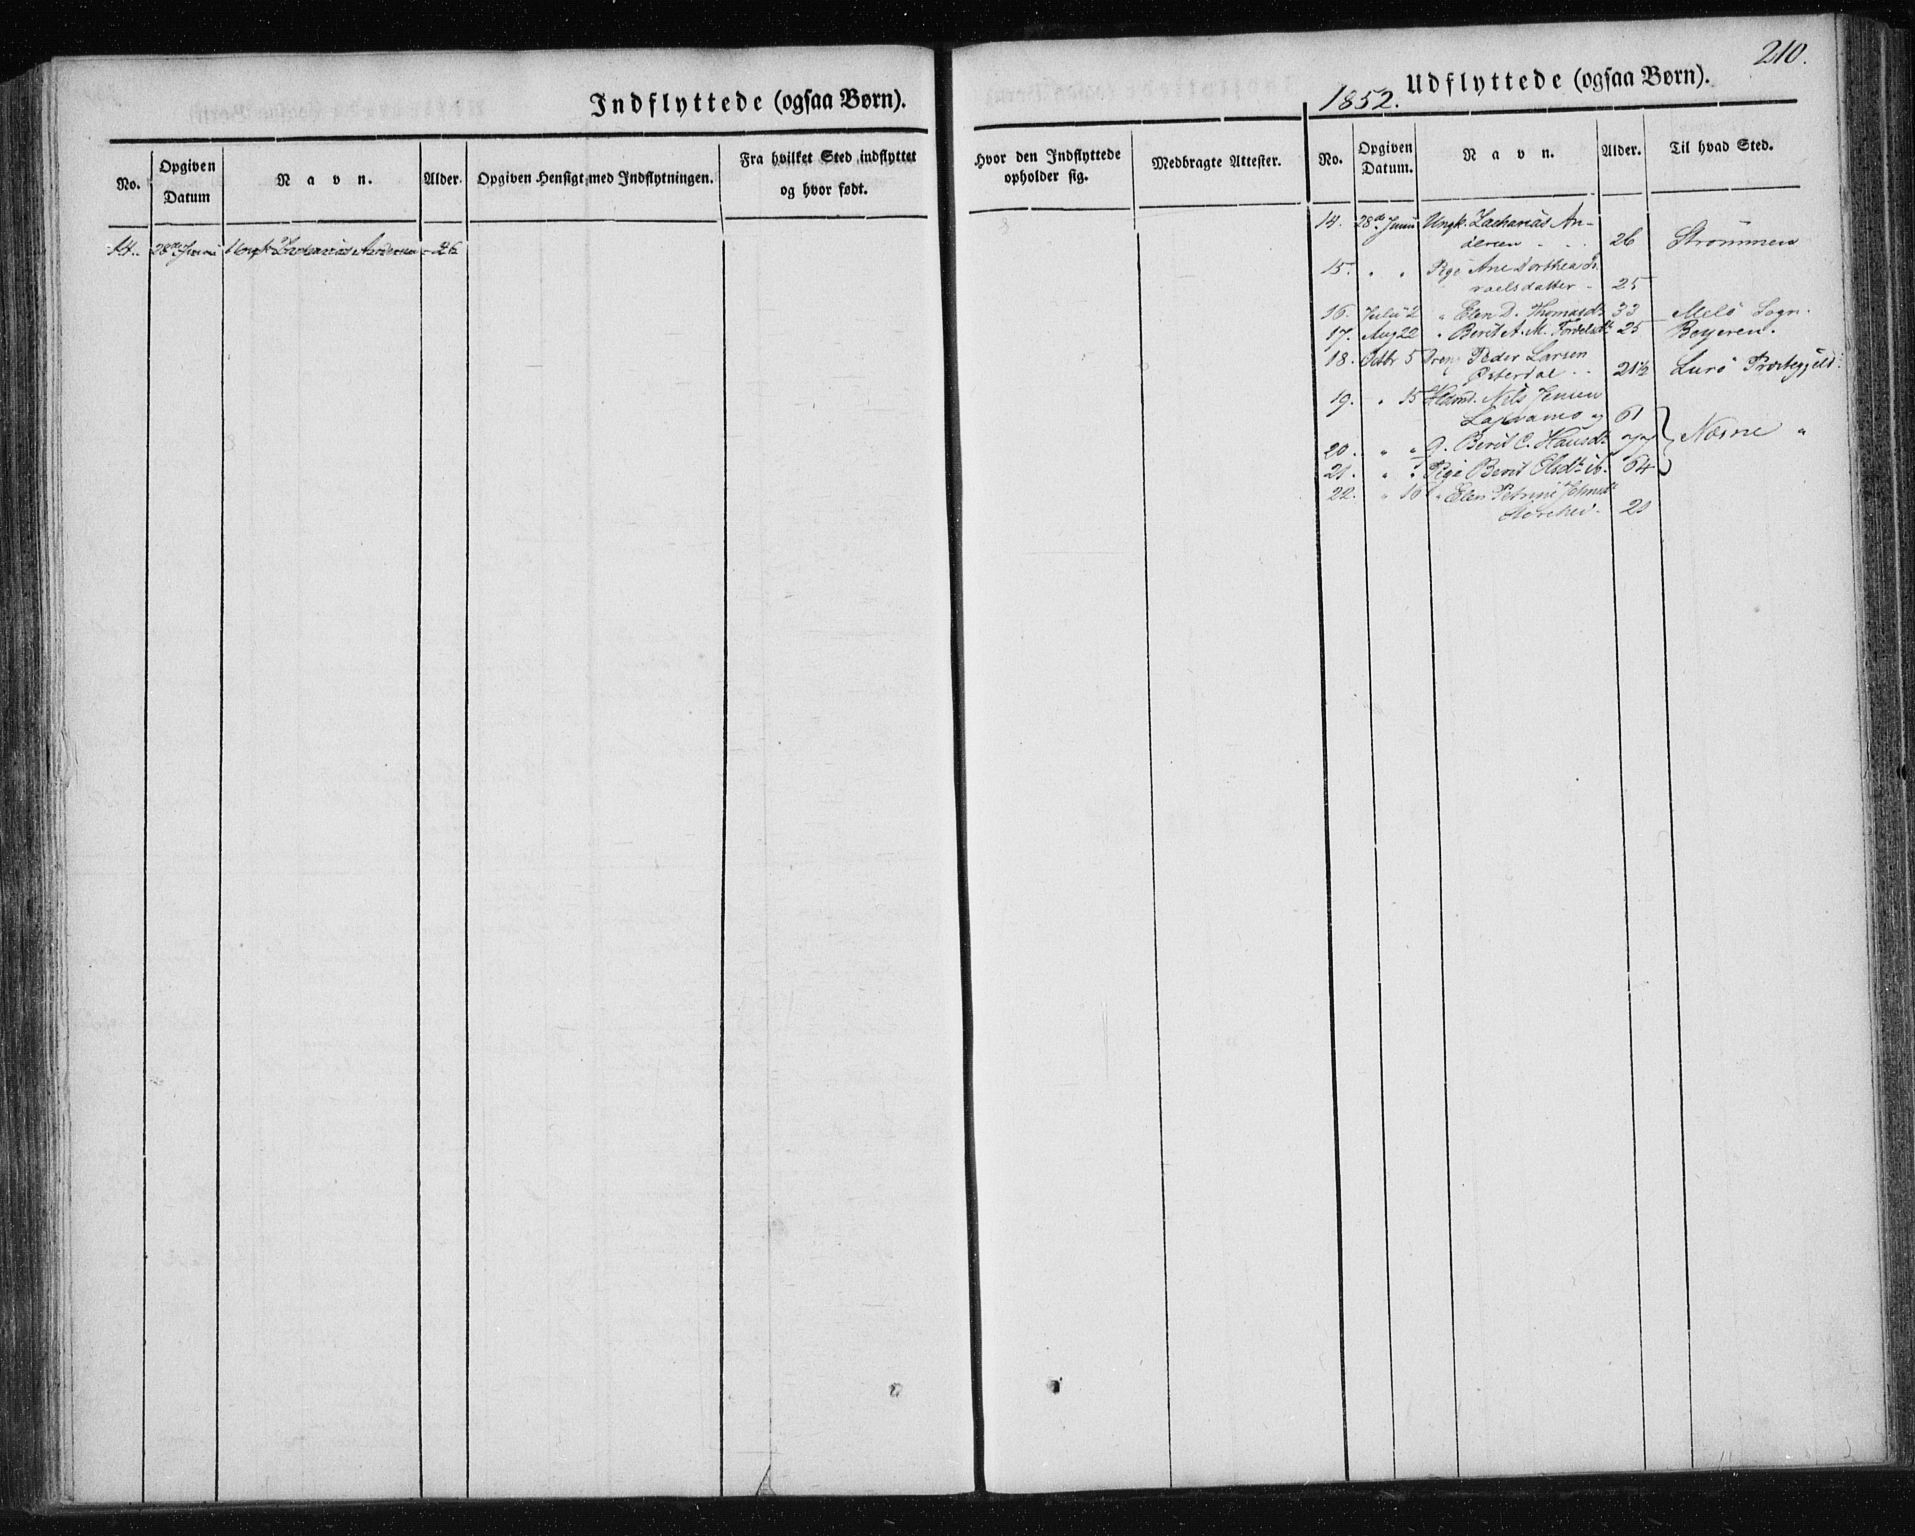 210.
Indflyttede (ogsaa Børn).
No.
Opgiven Datum
Navn.
Alder.
Opgiven Hensigt med Indflytningen.
Fra hvilket Sted indflyttet og hvor født.
14. 28de Juni Ungk. Zacharias Andersen 26
1852.
Udflyttede (ogsaa Børn).
Hvor den Indflyttede opholder sig.
Medbragte Attester.
No.
Opgiven Datum.
Navn.
Alder.
Til hvad Sted.
14. 28de Juni Ungk. Zacharias An-
dersen 26 Strømmen
15. " " Pige Ane Dorthea Is-
raelsdatter 25
16. Juli 2 " Elen D. Thomasdtr 33 Melø Sogn.
17. Aug 22 " Berit A. M. Tordelsdtr 25 Beyeren.
18. Octbr 5 Dreng Peder Larsen
Østerdal 21½ Lurø Præstegjeld.
19. " 15 Huusmd. Nils Jensen
og 61
20. " " Q. Berit C. Hansdtr Næsne "
21. " " Pige Berit Olsdtr ib. 64
22. " 16 " Elen Petrine Johnsdtr
21